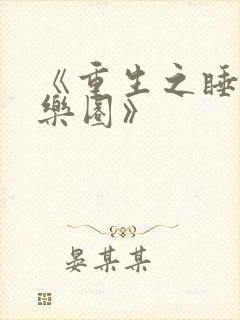 《重生之睡
樂園》
晏某某